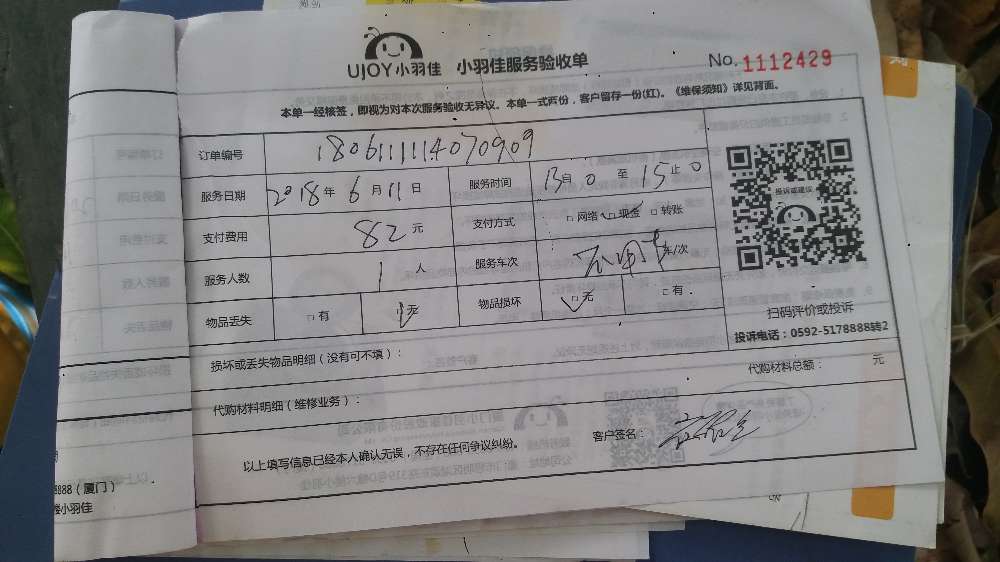 UJOY小羽佳 小羽佳服务验收单 No. 1112429
本单一经核签，即视为对本次服务验收无异议。本单一式两份，客户留存一份(红)。《维保须知》详见背面。
订单编号 180611114070909
服务日期 2018年6月11日 服务时间 13点0至15止0
支付费用 82元 支付方式 □网络 □现金 □转账
服务人数 1人 服务车次 车/次
物品丢失 □有 □无 物品损坏 □无 □有
投诉或建议
扫码评价或投诉
投诉电话：0592-5178888转2
损坏或丢失物品明细（没有可不填）：
代购材料明细（维修业务）： 代购材料总额： 元
以上填写信息已经本人确认无误，不存在任何争议纠纷。 客户签名：
8888（厦门）
小羽佳